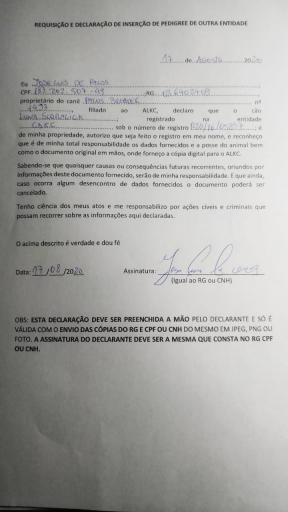 REQUISIÇÃO E DECLARAÇÃO DE INSERÇÃO DE PEDIGREE DE OUTRA ENTIDADE
17 de Agosto 2020
Eu
CPF RG
proprietário do canil nº
filiado ao ALKC, declaro que o cão
registrado na entidade
sob o número de registro ; é
de minha propriedade, autorizo que seja feito o registro em meu nome, e reconheço
que é de minha total responsabilidade os dados fornecidos e a posse do animal bem
como o documento original em mãos, onde forneço a cópia digital para o ALKC.
Sabendo-se que quaisquer causas ou consequências futuras recorrentes, oriundos por
informações deste documento fornecido, serão de minha responsabilidade. E que ainda,
caso ocorra algum desencontro de dados fornecidos o documento poderá ser
cancelado.
Tenho ciência dos meus atos e me responsabilizo por ações cíveis e criminais que
possam recorrer sobre as informações aqui declaradas.
O acima descrito é verdade e dou fé
Data: 17/08/2020 Assinatura:
(Igual ao RG ou CNH)
OBS: ESTA DECLARAÇÃO DEVE SER PREENCHIDA A MÃO PELO DECLARANTE E SÓ É
VÁLIDA COM O ENVIO DAS CÓPIAS DO RG E CPF OU CNH DO MESMO EM JPEG, PNG OU
FOTO. A ASSINATURA DO DECLARANTE DEVE SER A MESMA QUE CONSTA NO RG CPF
OU CNH.